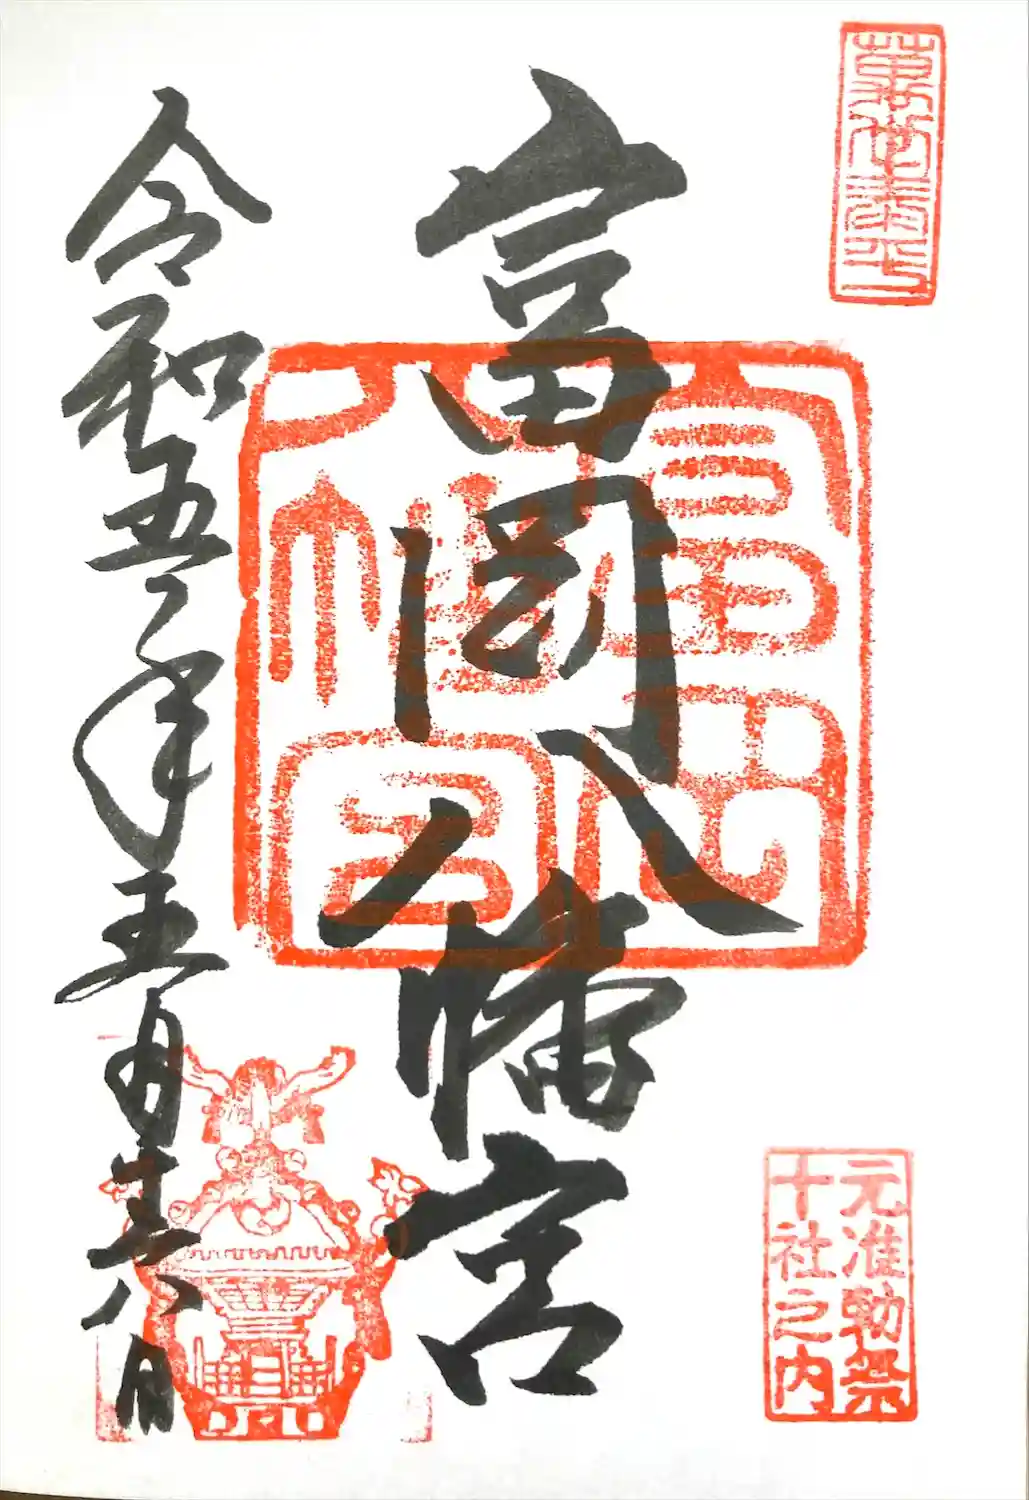 萬世泰平
富岡八幡宮
富岡八幡宮
元准勅祭
十社之内
令和五年五月 日